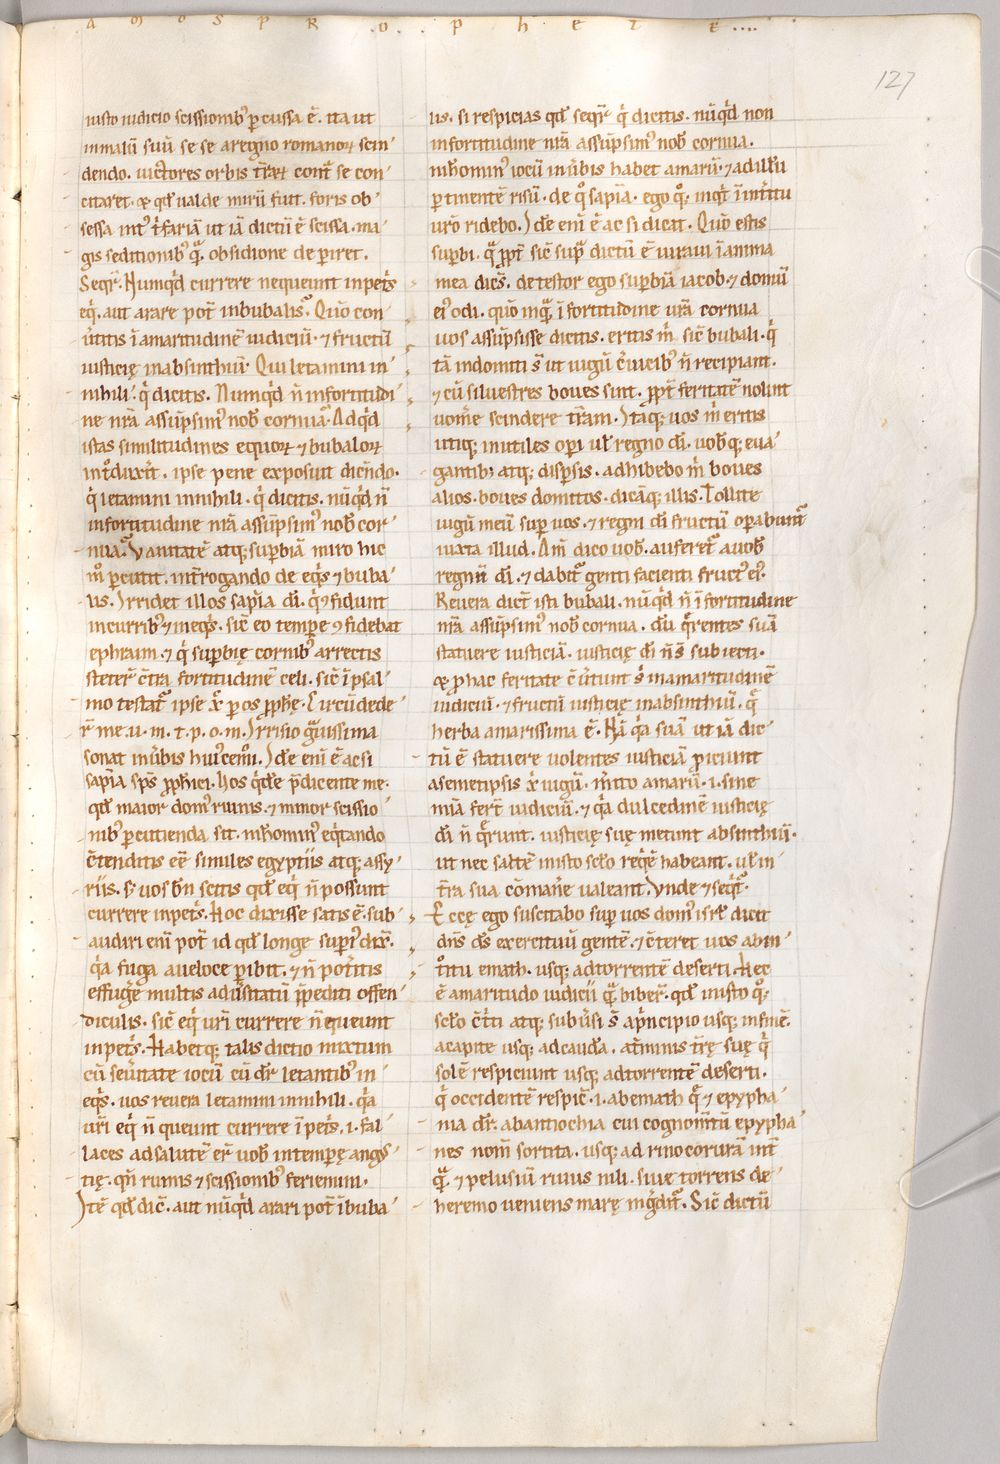 AMOS PRO
PHETE
127
iusto iudicio scissionib᾽ ꝑcussa ē. ita ut
in malū suū se se a regno romanoꝝ scin
dendo. uictores orbis t̄raꝝ cont̄ se con
citaret. ⁊ qđ ualde mirū fuit. foris ob
sessa int᾽ t̓fariā ut iā dictū ē scissa. ma
gis seditionib᾽ q̄. obsidione deꝑiret.
Seqr̄. Nunqđ currere nequeunt in pet̓s
eq̓. aut arare pot̄ in bubalis. Quō con
u̓titis ī amaritudinē iudiciū. ⁊ fructū
iusticię in absinthiū. Qui letamini in
nihili. q̓ dicitis. Nunqđ n̄ in fortitudi
ne nr̄a assūpsim᾽ nob̄ cornua. Ad qđ
istas similitudines equoꝝ ⁊ bubaloꝝ
int̓duxit. ipse pene exposuit dicendo.
q̓ letamini in nihili. q̓ dicitis. nūqđ n̄
in fortitudine nr̄a assūpsim᾽ nob̄ cor
nua. Vanitatē atq; suꝑbiā miro hic
m̊ ꝑcutit. int̄rogando de eq̓s ⁊ buba
lis. Irridet illos sapīa dī. q̓ ꝯfidunt
in currib᾽ ⁊ in eq̓s. sic̄ eo tempe ꝯfidebat
ephraim. ⁊ q̓ suꝑbię cornib᾽ arrectis
steter̄ c̄tra fortitudinē celi. sic̄ ī psal
mo testat᾽ ipse x̄ ꝑ os ꝓphē. Circūdede
r̄ me. u. m. t. p. o. m. Irrisio q̓uissima
sonat in ūbis hui᾽cemōi. Idē enī ē ac si
sapīa sp̄s ꝓphici. hos q̓de p̄dicente me.
qđ maior dom᾽ ruinis. ⁊ minor scissio
nib᾽ ꝑcutienda sit. nihomin᾽ eq̓tando
c̄tenditis eē similes egyptiis atq; assy
riis. s; uos bn̄ scitis qđ eq̓ n̄ possunt
currere in pet̓s. Hoc dixisse satis ē. sub
audiri enī pot̄ id qđ longe supi᾽ dix̄.
q̄a fuga a ueloce ꝑibit. ⁊ n̄ pot̓itis
effugēe multis aduēsitatū p̄pediti offen
diculis. sic̄ eq̓ ur̄i currere neq̄ueunt
in pet̓s. Habetq; talis dictio mixtum
cū seu̓itate iocū cū dr̄ letantib᾽ in
eq̓s. uos reuera letamini in nihili. q̄a
ur̄i eq̓ n̄ queunt currere ī pet̓s. i. fal
laces ad salutē er̄ uob̄ in tempe angꝰ
tię. qn̄ ruinis ⁊ scissionib᾽ feriemini.
Itē qđ dic̄. aut nūqđ arari pot̄ ī buba
lis. si respicias qđ seqr̄ q̓ dicitis. nūqđ non
in fortitudine nr̄a assūpsim᾽ nob̄ cornua.
nihomin᾽ iocū in ūbis habet amarū. ⁊ ad illū
ꝑtinentē risū. de q̊ sapīa. ego q̊. inqt̓ ī int̓itu
uro᾽ ridebo. Idē enī ē ac si dicat. Quō estis
suꝑbi. q̄ ꝓpt̄ sic̄ sup̄ dictū ē iuraui ī anima
mea dic̄s. detestor ego suꝑbiā iacob. ⁊ domū
ei᾽ odi. quō inq̄ ī fortitudine ur̄a cornua
uos assūpsisse dicitis. eritis m̓ sic̄ bubali. q̓
tā indomiti s̄ ut iugū c̓uicib᾽ n̄ recipiant.
⁊ cū siluestres boues sint. ꝓpt̄ feritatē nolunt
uome scindere t̄ram. Itaq; uos m̓ eritis
utiq; inutiles oꝑi ul̄ regno dī. uob̄q; eua
gantib; atq; disꝑsis. adhibebo m̓ boues
alios. boues domitos. dicāq; illis. Tollite
iugū meū suꝑ uos. ⁊ regni dī fructū oꝑabunt᾽
iuxta illud. Am̄ dico uob̄. auferet᾽ a uob̄
regnū dī. ⁊ dabit᾽ genti facienti fruct᾽ ei᾽.
Reuera dict̄ isti bubali. nūqđ n̄ ī fortitudine
nr̄a assūpsim᾽ nob̄ cornua. dū q̄rentes suā
statuere iusticiā. iusticię dī n̄ s̄ subiecti.
⁊ pro hac feritate c̄u̓tunt s̓ in amaritudinē
iudiciū. ⁊ fructū iusticię in absinthiū. q̄
herba amarissima ē. Nā q̓a suā ut iā dic
tū ē statuere uolentes iusticiā proiciunt
a semetipsis x̓ iugū. m̓ito amarū. i. sine
mīa fert̄ iudiciū. ⁊ q̄a dulcedinē iusticię
dī n̄ q̄runt. iusticię suę metunt absinthiū.
ut nec saltē in isto sclo req̓ē habeant. ul̄ in
t̄ra sua cōmane̓ ualeant. Vnde ⁊ seqt᾽.
Eccę ego suscitabo suꝑ uos dom᾽ isrl̄ dicit
dn̄s ds̄ exercituū gentē. ⁊ c̄teret uos ab in
t̊itu emath. usq; ad torrentē deserti. Hec
ē amaritudo iudicii q̄ biber̄. qđ in isto q̊;
sclo c̄t̓ti atq; sub ūsi s̄ a p̓ncipio usq; in finē.
a capite usq; ad cauda. a t̄minis t̄rę suę q̓
solē respiciunt usq; ad torrentē deserti.
q̓ occidentē respic̄. i. ab emath q̄ ⁊ epypha
nia dr̄. ab antiochia cui cognomtū epypha
nes nom̄ sortita. usq; ad rinocorurā int̄
q̄. ⁊ pelusiū riuus nili. siue torrens de
heremo ueniens mare mḡdit᾽. Sic̄ dictū